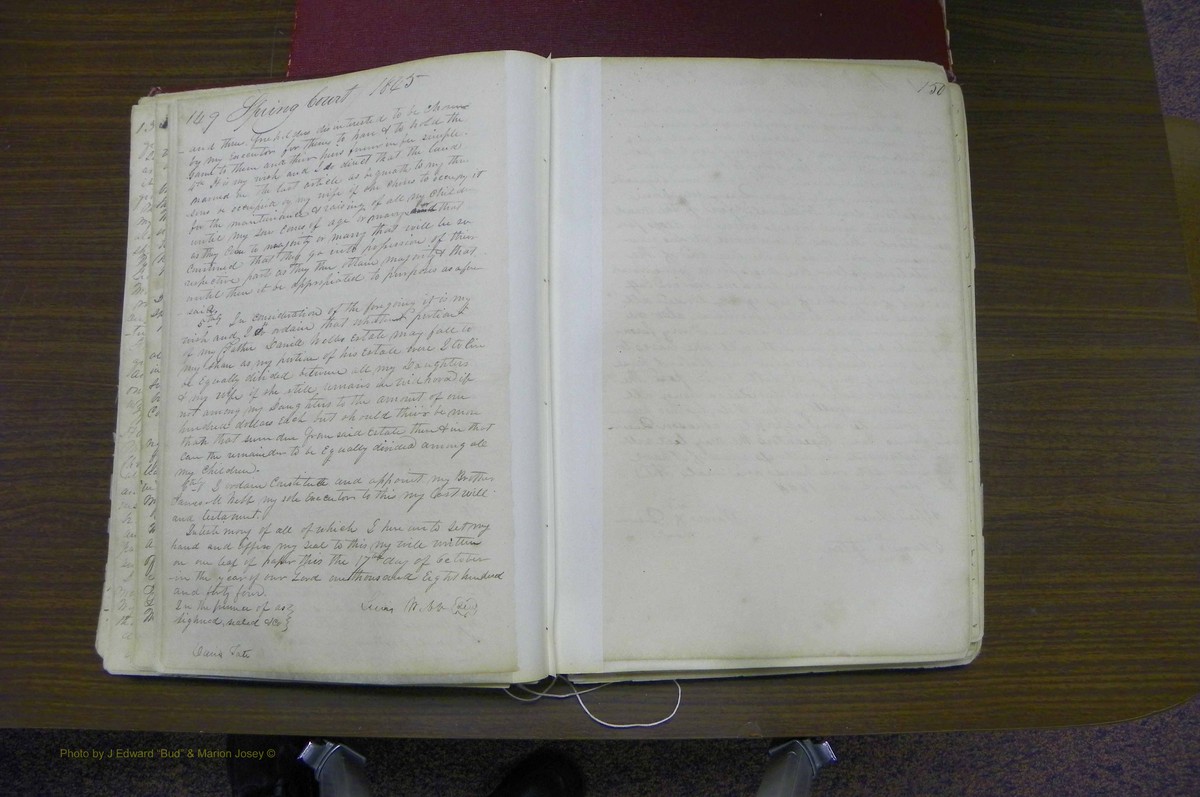 149 Spring Court 1845
and three good men disinterested to be chosen
by my executor for them to have & to hold the
same to them and their heirs forever in fee simple.
4th It is my wish and I do direct that the land
named in the last article as bequeath to my three
sons be occupied by my wife if she chuses to occupy it
for the maintainance & raising of all my Child
until my son comes of age or marry that
as they Come to majority or marry that will be so
continued that they go into possession of their
respective parts as they thus obtain majority & that
until then it be appropriated to purposes as afore
said.
5thly In consideration of the foregoing it is my
wish and I do ordain that whatever portion
of my Father David estate may fall to
my share as my portion of his estate were I to live
be Equally divided between all my Daughters
& my wife if she still remains in widowhood if
not among my Daughters to the amount of one
hundred dollars Each but should there be more
than that sum due from said estate then & in that
case the remainder to be Equally divided among all
my Children.
6thly I ordain Constitute and appoint my Brother
my sole executor to this my last will
and testament.
In testimony of all of which I here unto set my
hand and affix my seal to this my will written
on one leaf of paper this the 17th day of October
in the year of our Lord one thousand Eight hundred
and forty four.
In the presence of as
signed sealed &c
Seal
David Tate
150
Photo by J Edward "Bud" & Marion Josey ©